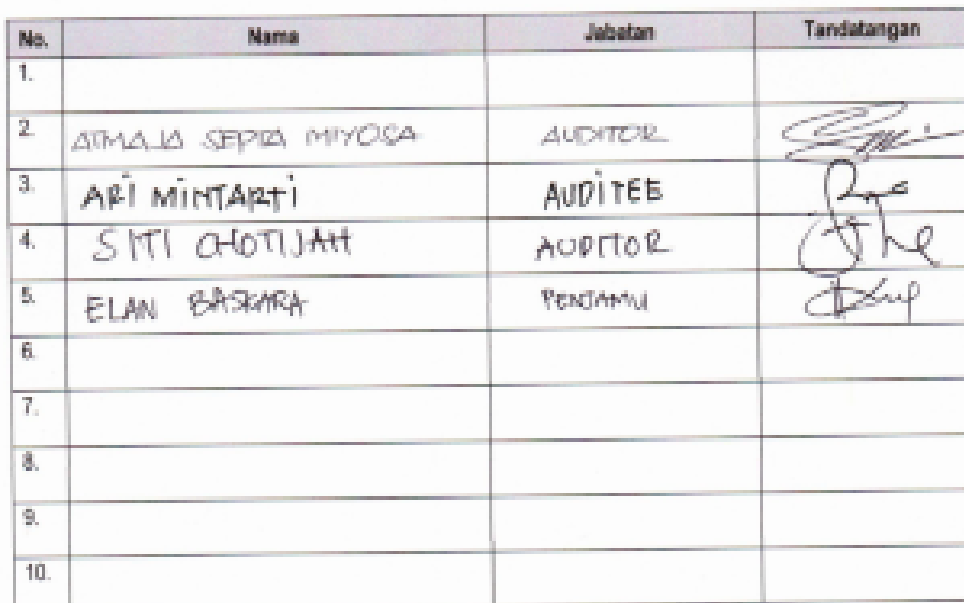 No. Nama Jabatan Tandatangan
1.
2. ATMAJA SEPTA MIYOSA AUDITOR
3. ARI MINTARTI AUDITEE
4. SITI CHOTIJAH AUDITOR
5. ELAN BASKARA PENJAMU
6.
7.
8.
9.
10.